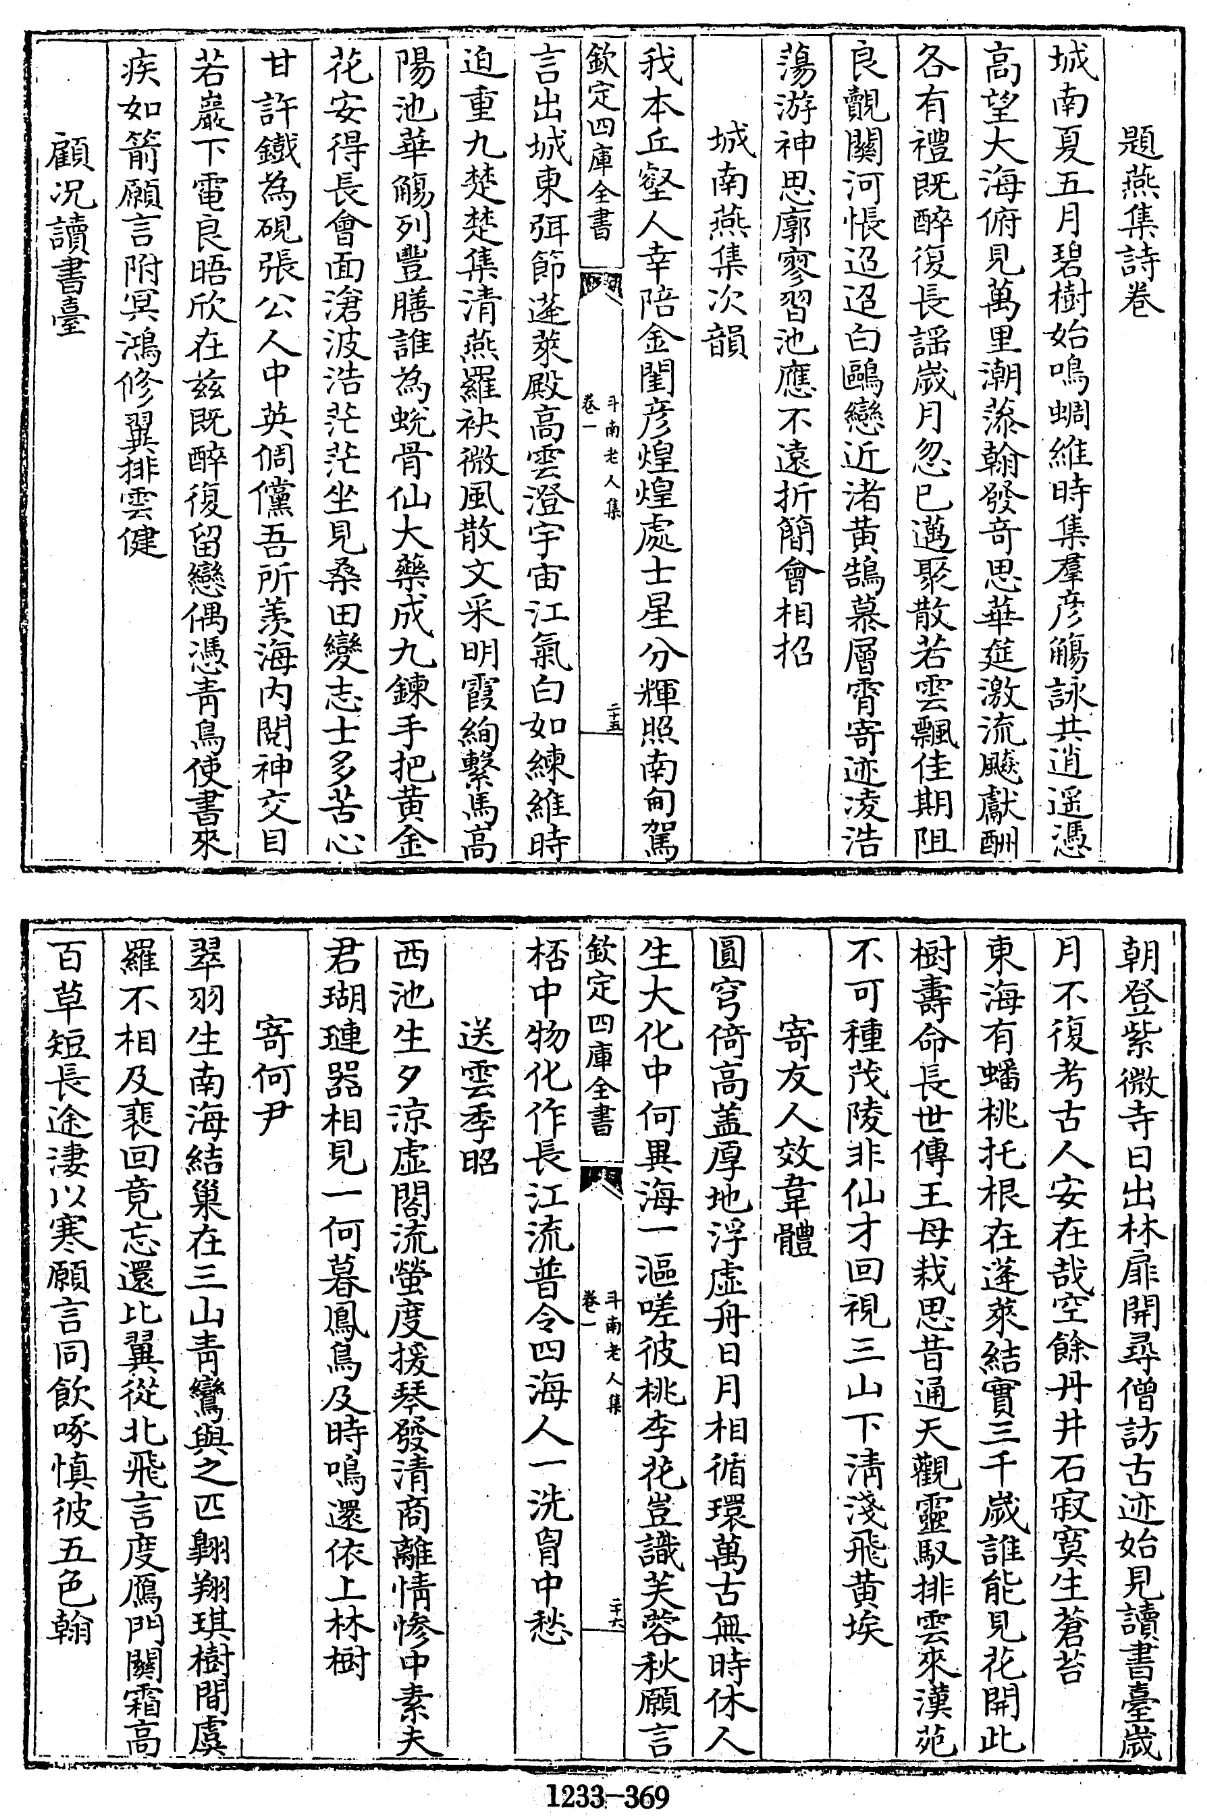 題燕集詩卷
城南夏五月碧樹始鳴蜩維時集羣彦觴詠共逍遥憑
高望大海俯見萬里潮藻翰發奇思華筵激流飈獻酬
各有禮既醉復長謡歲月忽已邁聚散若雲飄佳期阻
良覿關河悵迢迢白鷗戀近渚黄鵠慕層霄寄迹凌浩
蕩游神思廓寥習池應不遠折簡會相招
城南燕集次韻
我本丘壑人幸陪金閨彦煌煌處士星分輝照南甸駕
欽定四庫全書
斗南老人集
卷一
二十五
言出城東弭節蓬萊殿高雲澄宇宙江氣白如練維時
迫重九楚楚集清燕羅袂微風散文采明霞絢繫馬高
陽池華觴列豐膳誰為蜕骨仙大藥成九鍊手把黄金
花安得長會面滄波浩茫茫坐見桑田變志士多苦心
甘許鐵為硯張公人中英倜儻吾所羨海内閲神交目
若巖下電良晤欣在兹既醉復留戀偶憑青鳥使書來
疾如箭願言附冥鴻修翼排雲健
顧況讀書臺
朝登紫微寺日出林扉開尋僧訪古迹始見讀書臺歲
月不復考古人安在哉空餘丹井石寂寞生蒼苔
東海有蟠桃托根在蓬萊結實三千歲誰能見花開此
樹壽命長世傳王母栽思昔通天觀靈馭排雲來漢苑
不可種茂陵非仙才回視三山下清淺飛黄埃
寄友人效韋體
圓穹倚高盖厚地浮虚舟日月相循環萬古無時休人
生大化中何異海一漚嗟彼桃李花豈識芙蓉秋願言
欽定四庫全書
斗南老人集
卷一
二十六
桮中物化作長江流普令四海人一洗胷中愁
送雲季昭
西池生夕涼虚閣流螢度援琴發清商離情慘中素夫
君瑚璉器相見一何暮鳳鳥及時鳴還依上林樹
寄何尹
翠羽生南海結巢在三山青鸞與之匹翺翔琪樹間虞
羅不相及裵回竟忘還比翼從北飛言度鴈門關霜高
百草短長途淒以寒願言同飲啄慎彼五色翰
1233-369